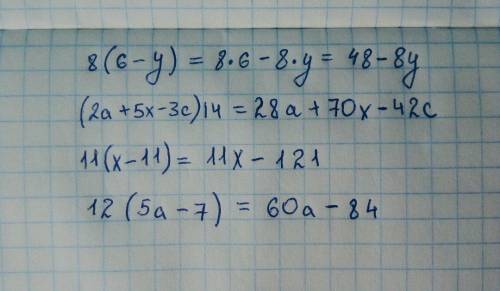 8(6-y) = 8·6-8·y = 48-8y
(2a+5x-3c)14 = 28a+70x-42c
11(x-11) = 11x-121
12(5a-7) = 60a-84